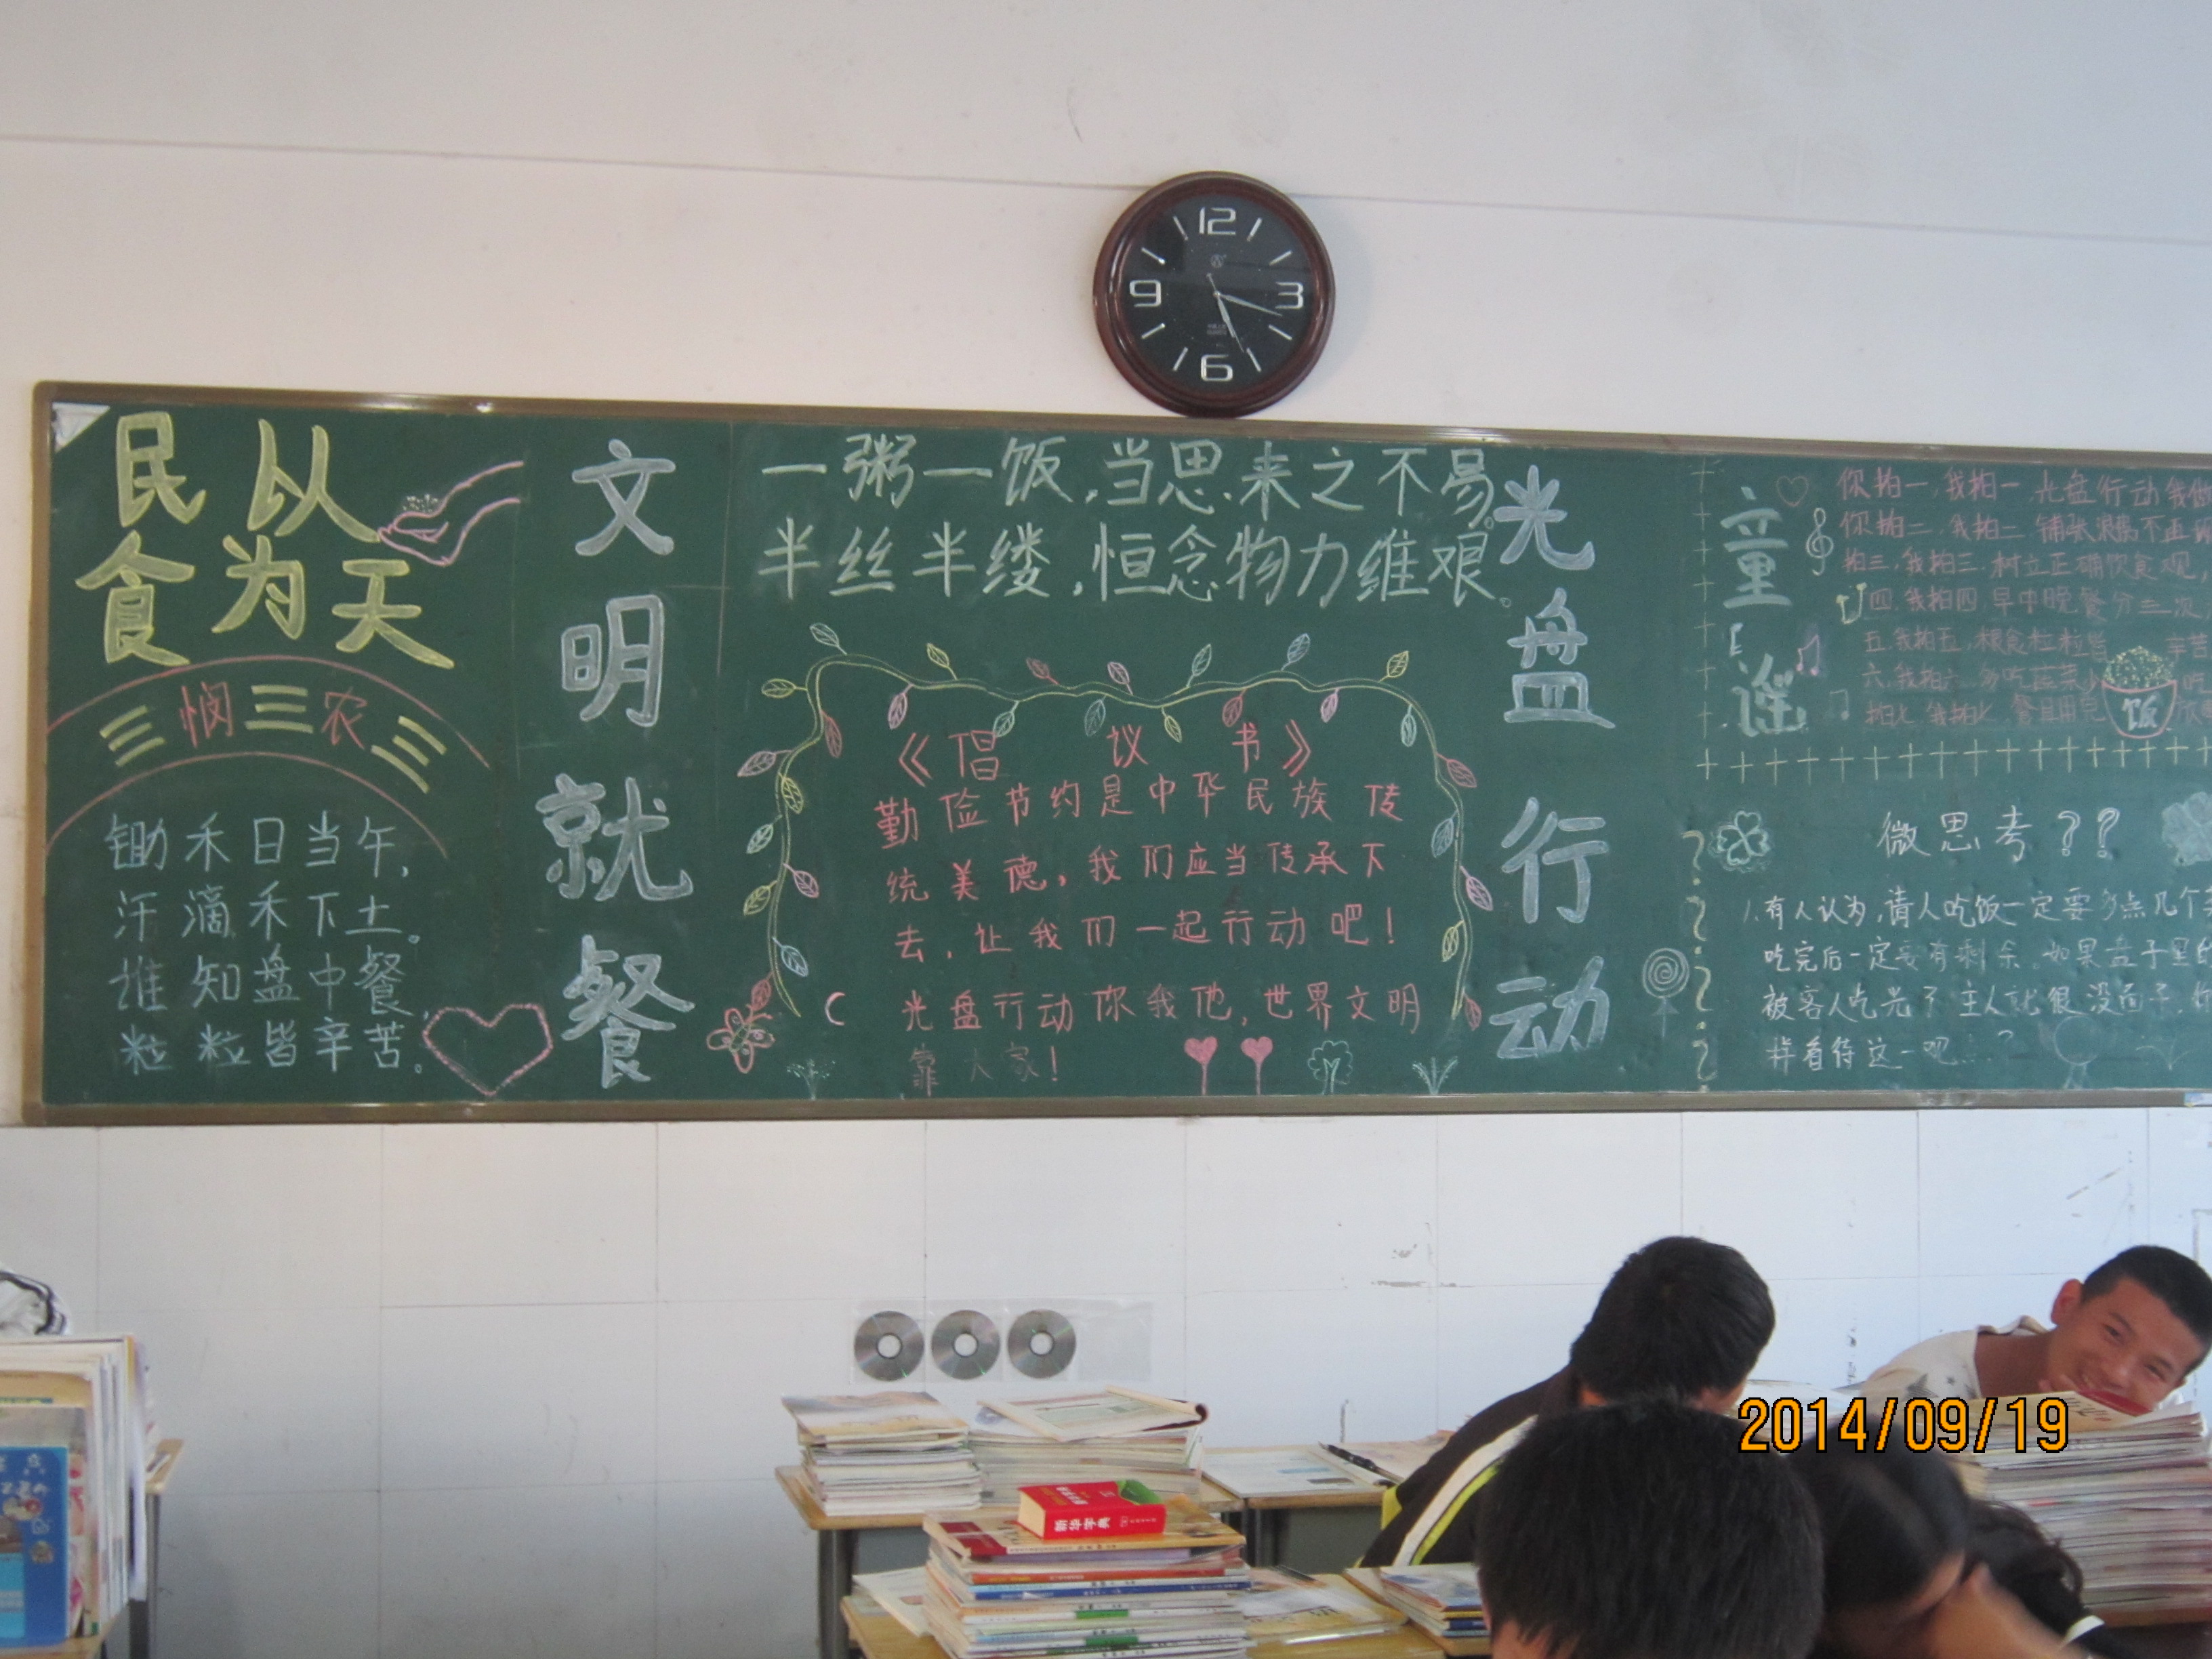 12
3
6
9
民以
食为天
三悯三农三
锄禾日当午,
汗滴禾下土。
谁知盘中餐,
粒粒皆辛苦。
文明就餐
一粥一饭,当思来之不易。
半丝半缕,恒念物力维艰。
《倡议书》
勤俭节约是中华民族传
统美德,我们应当传承下
去,让我们一起行动吧!
光盘行动你我他,世界文明
靠大家!
光盘行动
童谣
你拍一,我拍一,光盘行动我
你拍二,我拍二,铺张浪费不
拍三,我拍三,树立正确饮食观,
四,我拍四,早中晚餐分三次
五,我拍五,粮食粒粒皆辛苦
六,我拍六,多吃蔬菜少
饭
微思考??
1.有人认为,请人吃饭一定要多点几个
吃完后一定要有剩余,如果盘子里的
被客人吃光了主人就很没面子,
样看待这一吧...?
新华字典
2014/09/19